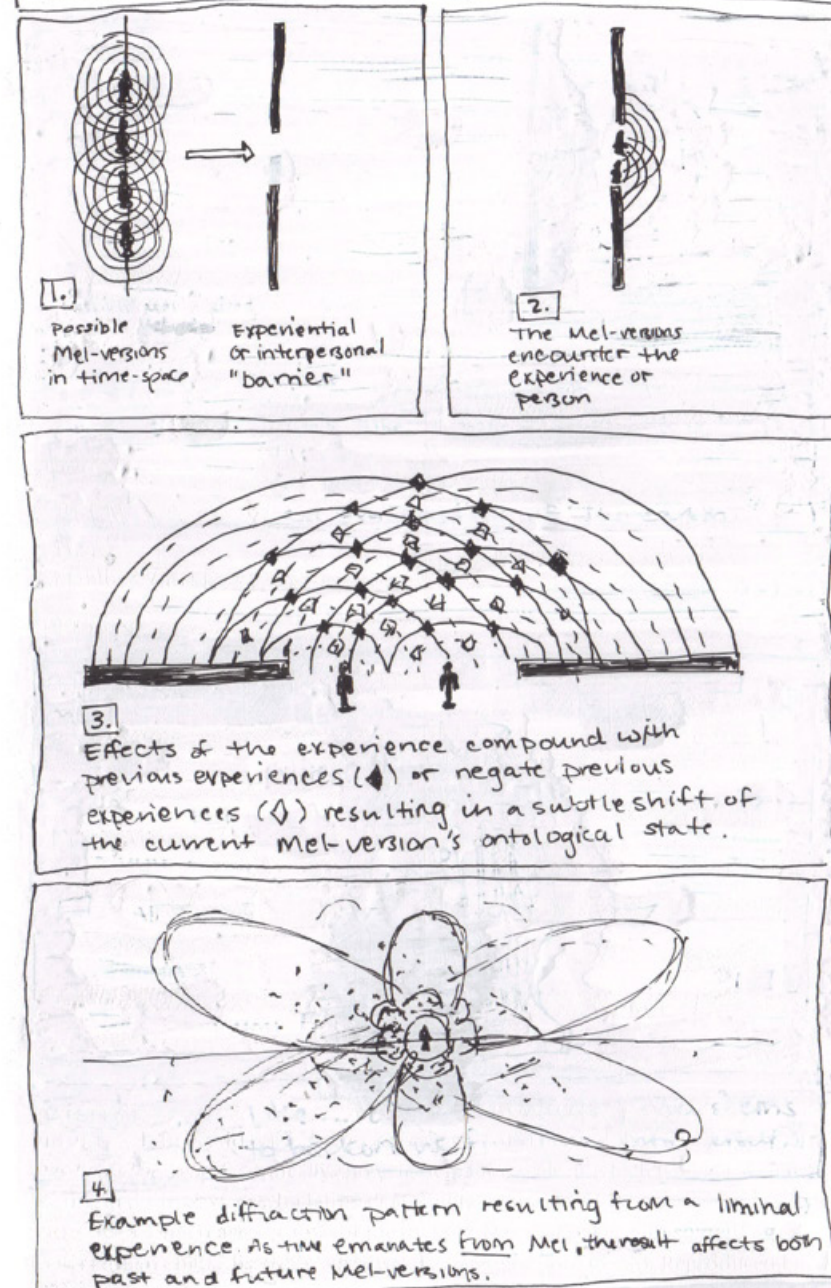 1.
possible
Mel-versions
in time-space
Experiential
or interpersonal
"barrier"
2.
The Mel-versions
encounter the
experience or
person
3.
Effects of the experience compound with
previous experiences (◆) or negate previous
experiences (◇) resulting in a subtle shift of
the current Mel-version's ontological state.
4.
Example diffraction pattern resulting from a liminal
experience. As time emanates from Mel, the result affects both
past and future Mel-versions.